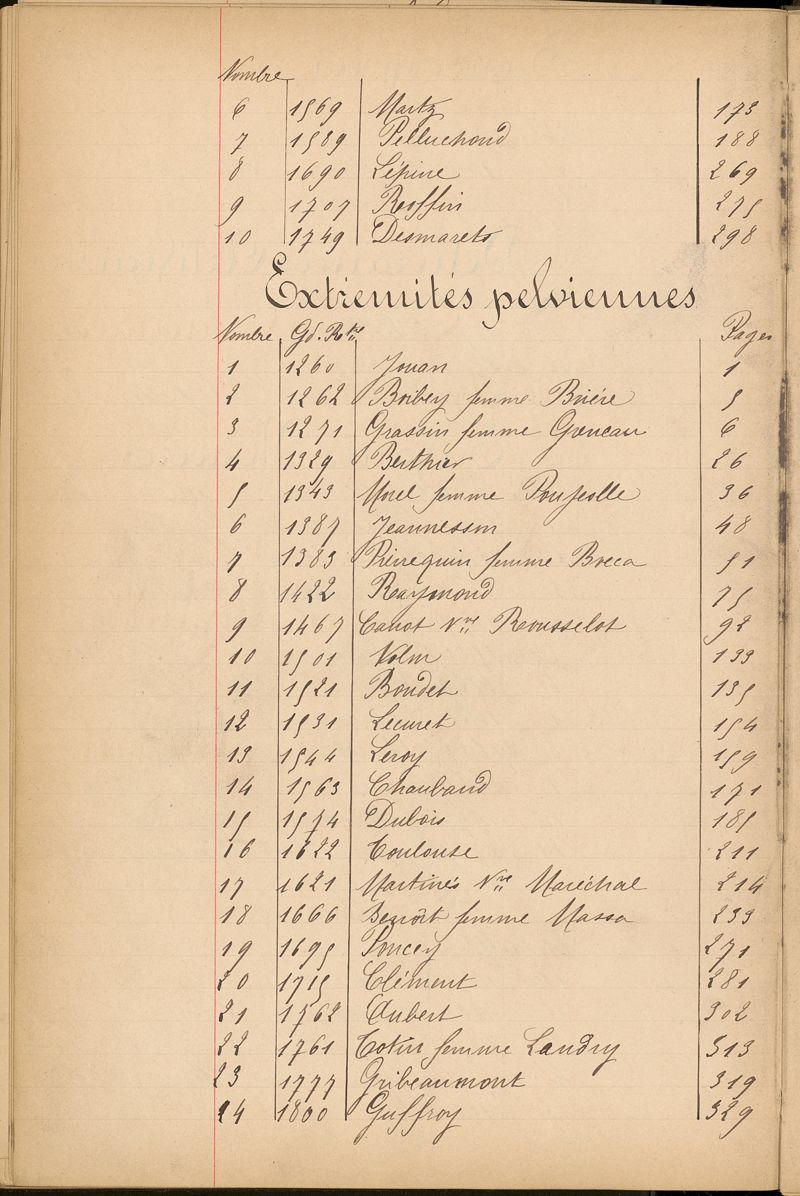 Nombre
6 1569 Martz 173
7 1589 Pelluchoud 188
8 1690 Lépine 269
9 1707 Roffin 275
10 1749 Desmarets 298
Extrémités pelviennes
Nombre Gd. Rtre Pages
1 1260 Jouan 1
2 1262 Boibey femme Brière 5
3 1271 Grassin femme Greneau 6
4 1329 Berthier 26
5 1343 Morel femme 36
6 1387 Jeannesson 48
7 1383 Pierrequin femme Breca 51
8 1422 Raymond 75
9 1467 Canot Vve Rousselot 92
10 1501 Volm 133
11 1521 Boudet 135
12 1531 Lecuret 154
13 1544 Leroy 159
14 1563 Chaubaud 171
15 1574 Dubois 185
16 1622 Toulouse 211
17 1621 Martinès Vve Maréchal 214
18 1666 Benoît femme Massa 233
19 1695 Poncey 271
20 1715 Clément 281
21 1762 Aubert 302
22 1761 Cotin femme Landry 313
23 1777 Gribeaumont 319
24 1800 Guffroy 329